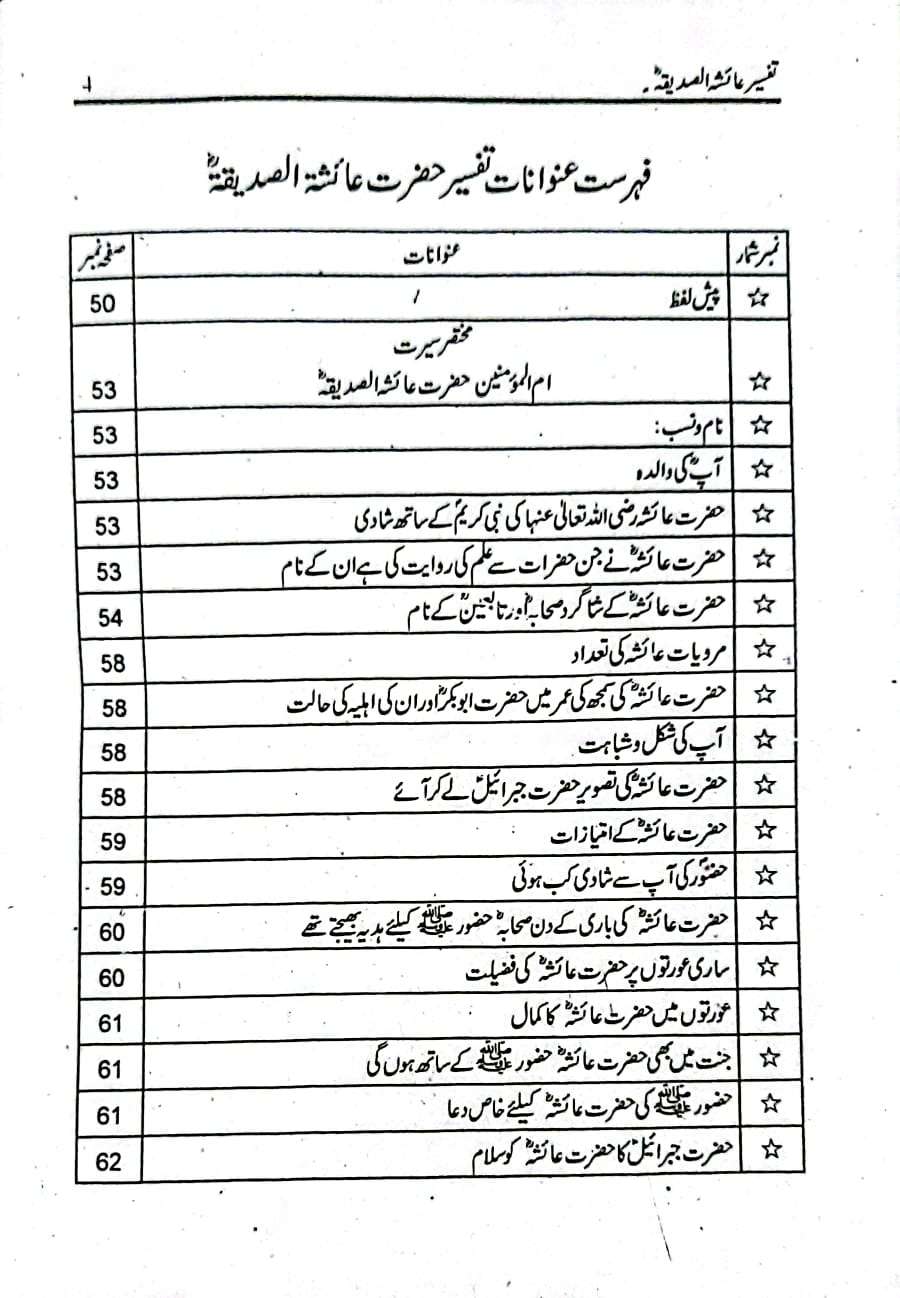 تفسیر عائشہ الصدیقہؓ۔ 4
فہرست عنوانات تفسیر حضرت عائشۃ الصدیقۃؓ
نمبر شمار عنوانات صفحہ نمبر
☆ پیش لفظ 50
مختصر سیرت
☆ ام المؤمنین حضرت عائشہ الصدیقہؓ 53
☆ نام و نسب: 53
☆ آپؓ کی والدہ 53
☆ حضرت عائشہ رضی اللہ تعالیٰ عنہا کی نبی کریمؐ کے ساتھ شادی 53
☆ حضرت عائشہؓ نے جن حضرات سے علم کی روایت کی ہے ان کے نام 53
☆ حضرت عائشہؓ کے شاگرد صحابہؓ اور تابعینؒ کے نام 54
☆ مرویات عائشہ کی تعداد 58
☆ حضرت عائشہؓ کی سمجھ کی عمر میں حضرت ابوبکرؓ اور ان کی اہلیہ کی حالت 58
☆ آپ کی شکل و شباہت 58
☆ حضرت عائشہؓ کی تصویر حضرت جبرائیلؑ لے کر آئے 58
☆ حضرت عائشہؓ کے امتیازات 59
☆ حضورؐ کی آپ سے شادی کب ہوئی 59
☆ حضرت عائشہؓ کی باری کے دن صحابہؓ حضور ﷺ کیلئے ہدیہ بھیجتے تھے 60
☆ ساری عورتوں پر حضرت عائشہؓ کی فضیلت 60
☆ عورتوں میں حضرت عائشہؓ کا کمال 61
☆ جنت میں بھی حضرت عائشہؓ حضور ﷺ کے ساتھ ہوں گی 61
☆ حضور ﷺ کی حضرت عائشہؓ کیلئے خاص دعا 61
☆ حضرت جبرائیلؑ کا حضرت عائشہؓ کو سلام 62